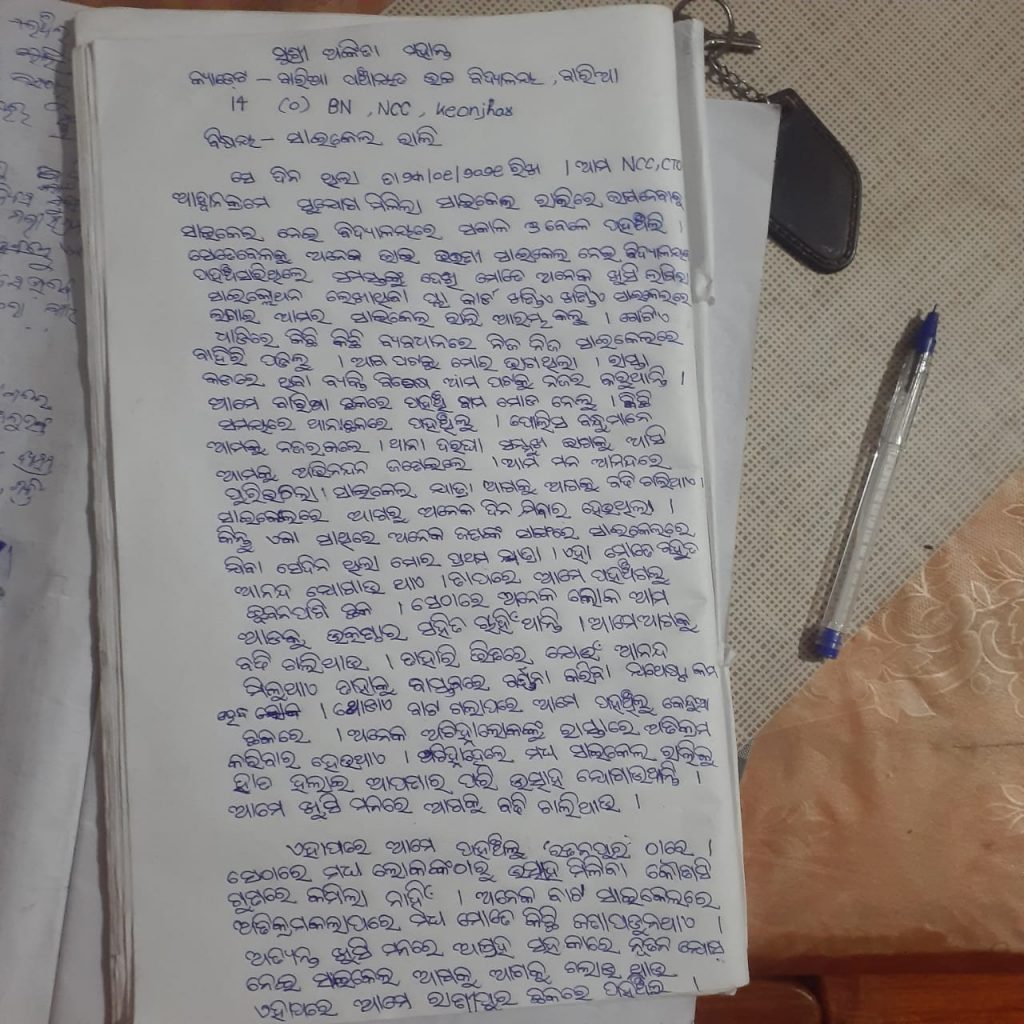 ସୁଶ୍ରୀ ଅଙ୍କିତା ମହାନ୍ତ
କ୍ୟାଡେଟ – ବାରିଆ ପଞ୍ଚାୟତ ଉଚ୍ଚ ବିଦ୍ୟାଳୟ, ବାରିଆ
14 (O) BN, NCC, Keonjhar
ବିଷୟ – ସାଇକେଲ ରାଲି
ସେ ଦିନ ଥିଲା ତା ରିଖ । ଆମ NCC, CTO
ଆହ୍ୱାନକ୍ରମେ ସୁଯୋଗ ମିଳିଲା ସାଇକେଲ ରାଲିରେ ଭାଗନେବାକୁ
ସାଇକେଲ ନେଇ ବିଦ୍ୟାଳୟରେ ସକାଳ ୭ ବେଳେ ପହଞ୍ଚିଲି ।
ସେତେବେଳକୁ ଅନେକ ଭାଇ ଭଉଣୀ ସାଇକେଲ ନେଇ ବିଦ୍ୟାଳୟରେ
ପହଞ୍ଚିସାରିଥିଲେ ସମସ୍ତଙ୍କୁ ଦେଖି ମୋତେ ଅନେକ ଖୁସି ଲାଗିଲା
ସାଇକ୍ଲୋଥନ ଲେଖାଥିବା ପ୍ଲା କାର୍ଡ ଖଣ୍ଡିଏ ଖଣ୍ଡିଏ ସାଇକେଲରେ
ଲଗାଇ ଆମର ସାଇକେଲ ରାଲି ଆରମ୍ଭ କଲୁ । ଗୋଟିଏ
ଧାଡିରେ କିଛି କିଛି ବ୍ୟବଧାନରେ ନିଜ ନିଜ ସାଇକେଲରେ
ବାହାରି ପଡିଲୁ । ଆଗ ପଟକୁ ମୋର ଭାଗଥିଲା । ରାସ୍ତା
କଡରେ ଥିବା ବ୍ୟକ୍ତି ବିଶେଷ ଆମ ପଟକୁ ନଜର କରୁଥାନ୍ତି ।
ଆମେ ବାରିଆ ଛକରେ ପହଞ୍ଚି ବାମ ମୋଡ ନେଲୁ । କିଛି
ସମୟରେ ଥାନାଛକରେ ପହଞ୍ଚିଲୁ । ପୋଲିସ ବନ୍ଧୁମାନେ
ଆମକୁ ନଜରକଲେ । ଥାନା ଦରଘା ସମ୍ମୁଖ ଭାଗକୁ ଆସି
ଆମକୁ ଅଭିନନ୍ଦନ ଜଣାଇଲେ । ଆମ ମନ ଆନନ୍ଦରେ
ପୁରିଉଠିଲା । ସାଇକେଲ ଯାତ୍ରା ଆଗକୁ ଆଗକୁ ବଢି ଚାଲିଥାଏ ।
ସାଇକେଲରେ ଆଗରୁ ଅନେକ ଦିନ ଯିବାର ହେଉଥିଲା ।
କିନ୍ତୁ ଏକା ସାଥିରେ ଅନେକ ଜଣଙ୍କ ସାଙ୍ଗରେ ସାଇକେଲରେ
ଯିବା ସେଦିନ ଥିଲା ମୋର ପ୍ରଥମ ଯାତ୍ରା । ଏହା ମୋତେ ବହୁତ
ଆନନ୍ଦ ଯୋଗାଉ ଥାଏ । ତାପରେ ଆମେ ପହଞ୍ଚିଗଲୁ
ଛକ । ସେଠାରେ ଅନେକ ଲୋକ ଆମ
ଆଡକୁ ଉତ୍କଣ୍ଠାର ସହିତ ଚାହିଁ ଥାନ୍ତି । ଆମେ ଆଗକୁ
ବଢି ଚାଲିଥାଉ । ତାହାରି ଭିତରେ ଯେଉଁ ଆନନ୍ଦ
ମିଳୁଥାଏ ତାହାକୁ ବାସ୍ତବରେ ବର୍ଣ୍ଣନା କରିବା କମ
। ଗୋଟାଏ ବାଟ ଗଲାପରେ ଆମେ ପହଞ୍ଚିଲୁ କେନ୍ଦୁଆ
ଛକରେ । ଅନେକ ଅଚିହ୍ନାଲୋକଙ୍କୁ ରାସ୍ତାରେ ଅତିକ୍ରମ
କରିବାର ହେଉଥାଏ । ଅଚିହ୍ନାହେଲେ ମଧ୍ୟ ସାଇକେଲ ରାଲିକୁ
ହାତ ହଲାଇ ଆପଣାର ପରି ଉତ୍ସାହ ଯୋଗାଉଥାନ୍ତି ।
ଆମେ ଖୁସି ମନରେ ଆଗକୁ ବଢି ଚାଲିଥାଉ ।
ଏହାପରେ ଆମେ ପହଞ୍ଚିଲୁ ଠାରେ ।
ସେଠାରେ ମଧ୍ୟ ଲୋକଙ୍କଠାରୁ ଉତ୍ସାହ ମିଳିବା କୌଣସି
ଗୁଣରେ କମିଲା ନାହିଁ । ଅନେକ ବାଟ ସାଇକେଲରେ
ଅତିକ୍ରମକଲାପରେ ମଧ୍ୟ ମୋତେ କିଛି ଜଣାପଡୁନଥାଏ ।
ଅତ୍ୟନ୍ତ ଖୁସି ମନରେ ଆଗ୍ରହ ସହ କାରେ ନୂତନ ଯୋସ
ନେଇ ସାଇକେଲ ଆଗକୁ ଆଗକୁ ଥାଉ
ଏହାପରେ ଆମେ ରାଣୀପୁର ଛକରେ ପହଞ୍ଚିଲୁ ।